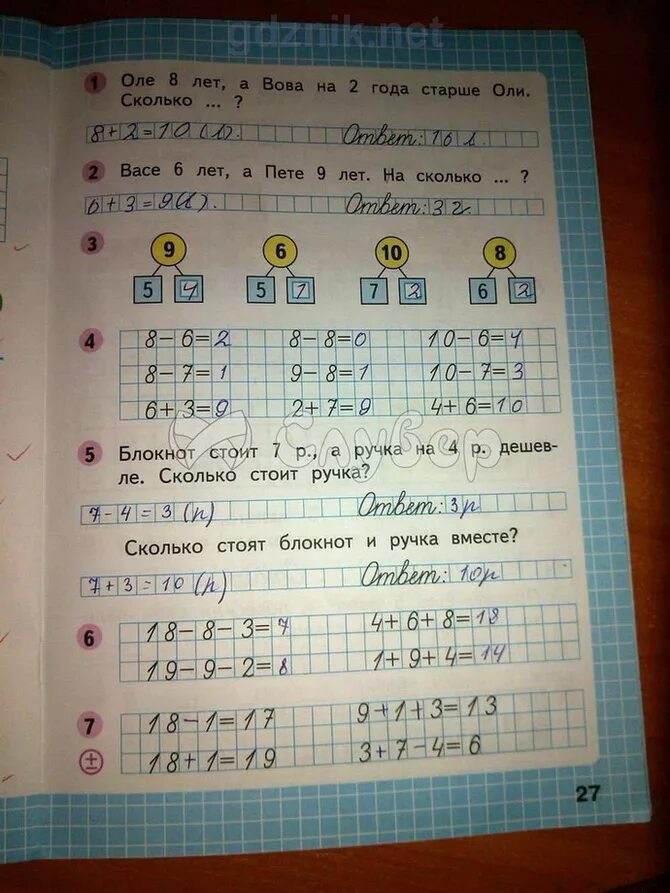 gdznik.net
1 Оле 8 лет, а Вова на 2 года старше Оли.
Сколько ... ?
8+2=10(л). Ответ: 10 л.
2 Васе 6 лет, а Пете 9 лет. На сколько ... ?
6+3=9(л). Ответ: 3 г.
3 9 6 10 8
5 4 5 1 7 2 6 2
4 8-6=2 8-8=0 10-6=4
8-7=1 9-8=1 10-7=3
6+3=9 2+7=9 4+6=10
Слувер
5 Блокнот стоит 7 р., а ручка на 4 р. дешев-
ле. Сколько стоит ручка?
7-4=3(р) Ответ: 3р
Сколько стоят блокнот и ручка вместе?
7+3=10(р) Ответ: 10р
6 18-8-3=7 4+6+8=18
19-9-2=8 1+9+4=14
7 18-1=17 9+1+3=13
± 18+1=19 3+7-4=6
27